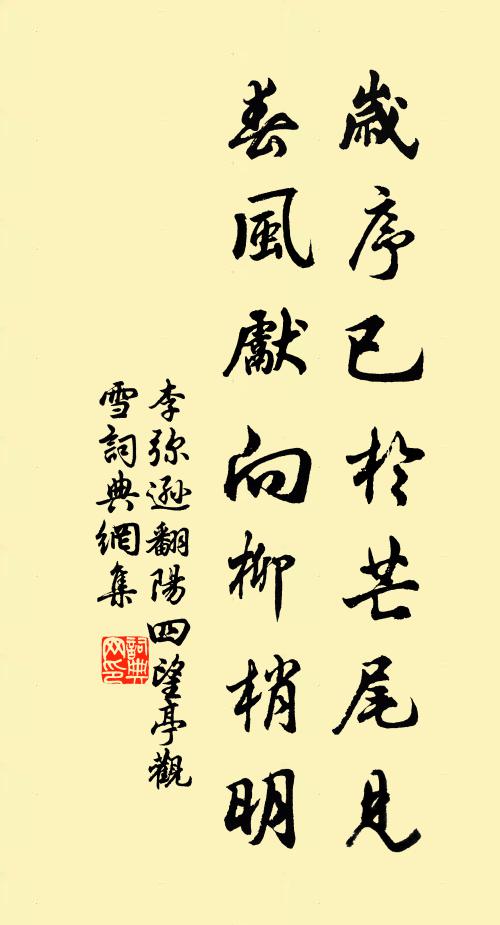 歲序已於芒尾見
春風獻向柳梢明
李弥遜翻陽四望亭觀
雪詞典網集
詞典
网印